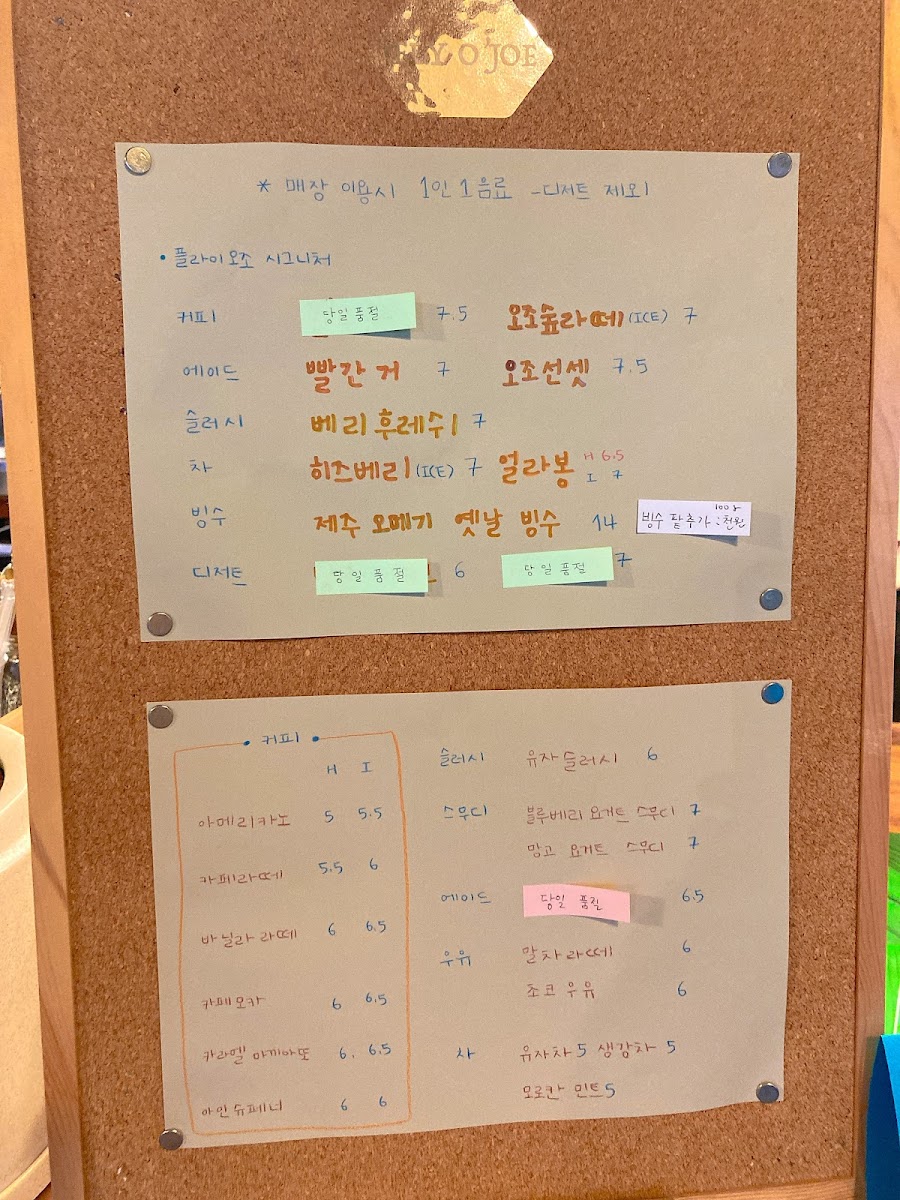 FLY O'JOE
* 매장 이용시 1인 1음료 - 디저트 제외
• 플라이오조 시그니처
커피 당일품절 7.5 오조숲라떼 (ICE) 7
에이드 빨간 거 7 오조선셋 7.5
슬러시 베리후레쉬 7
차 히즈베리 (ICE) 7 얼라봉 H 6.5 I 7
빙수 제주 오메기 옛날 빙수 14 빙수 팥추가 100g : 천원
디저트 당일품절 6 당일품절 7
• 커피 •
H I
아메리카노 5 5.5
카페라떼 5.5 6
바닐라 라떼 6 6.5
카페모카 6 6.5
카라멜 마끼아또 6. 6.5
아인슈페너 6 6
슬러시 유자슬러시 6
스무디 블루베리 요거트 스무디 7
망고 요거트 스무디 7
에이드 당일 품절 6.5
우유 말차라떼 6
초코우유 6
차 유자차 5 생강차 5
모로칸 민트 5